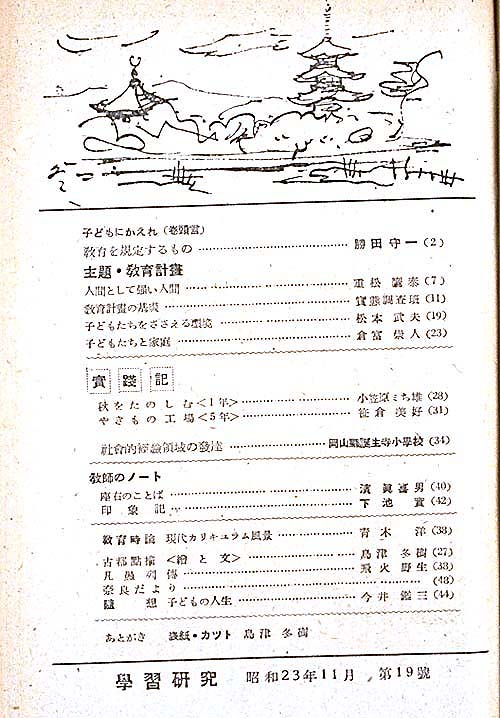 子どもにかえれ (巻頭言)
教育を規定するもの 勝田守一 (2)
主題・教育計畫
人間として强い人間 重松 鷹泰 (7)
教育計畫の基礎 實態調査班 (11)
子どもたちをささえる環境 松本 武夫 (19)
子どもたちと家庭 倉富 崇人 (23)
實踐記
秋をたのしむ<1年> 小笠原 みち雄 (28)
やきもの工場<5年> 倉 美好 (31)
社會的經驗領域の發達 岡山縣誕生寺小學校 (34)
教師のノート
座右のことば 濱 眞喜男 (40)
印象記 下池 實 (42)
教育時論 現代カリキュラム風景 青木 洋 (38)
古都點描 <繪と文> 島津 冬樹 (27)
凡愚列傳 飛火野生 (38)
奈良だより (48)
隨想 子どもの人生 今井 鑑三 (44)
あとがき 表紙・カツト 島津 冬樹
學習研究 昭和23年11月 第19號